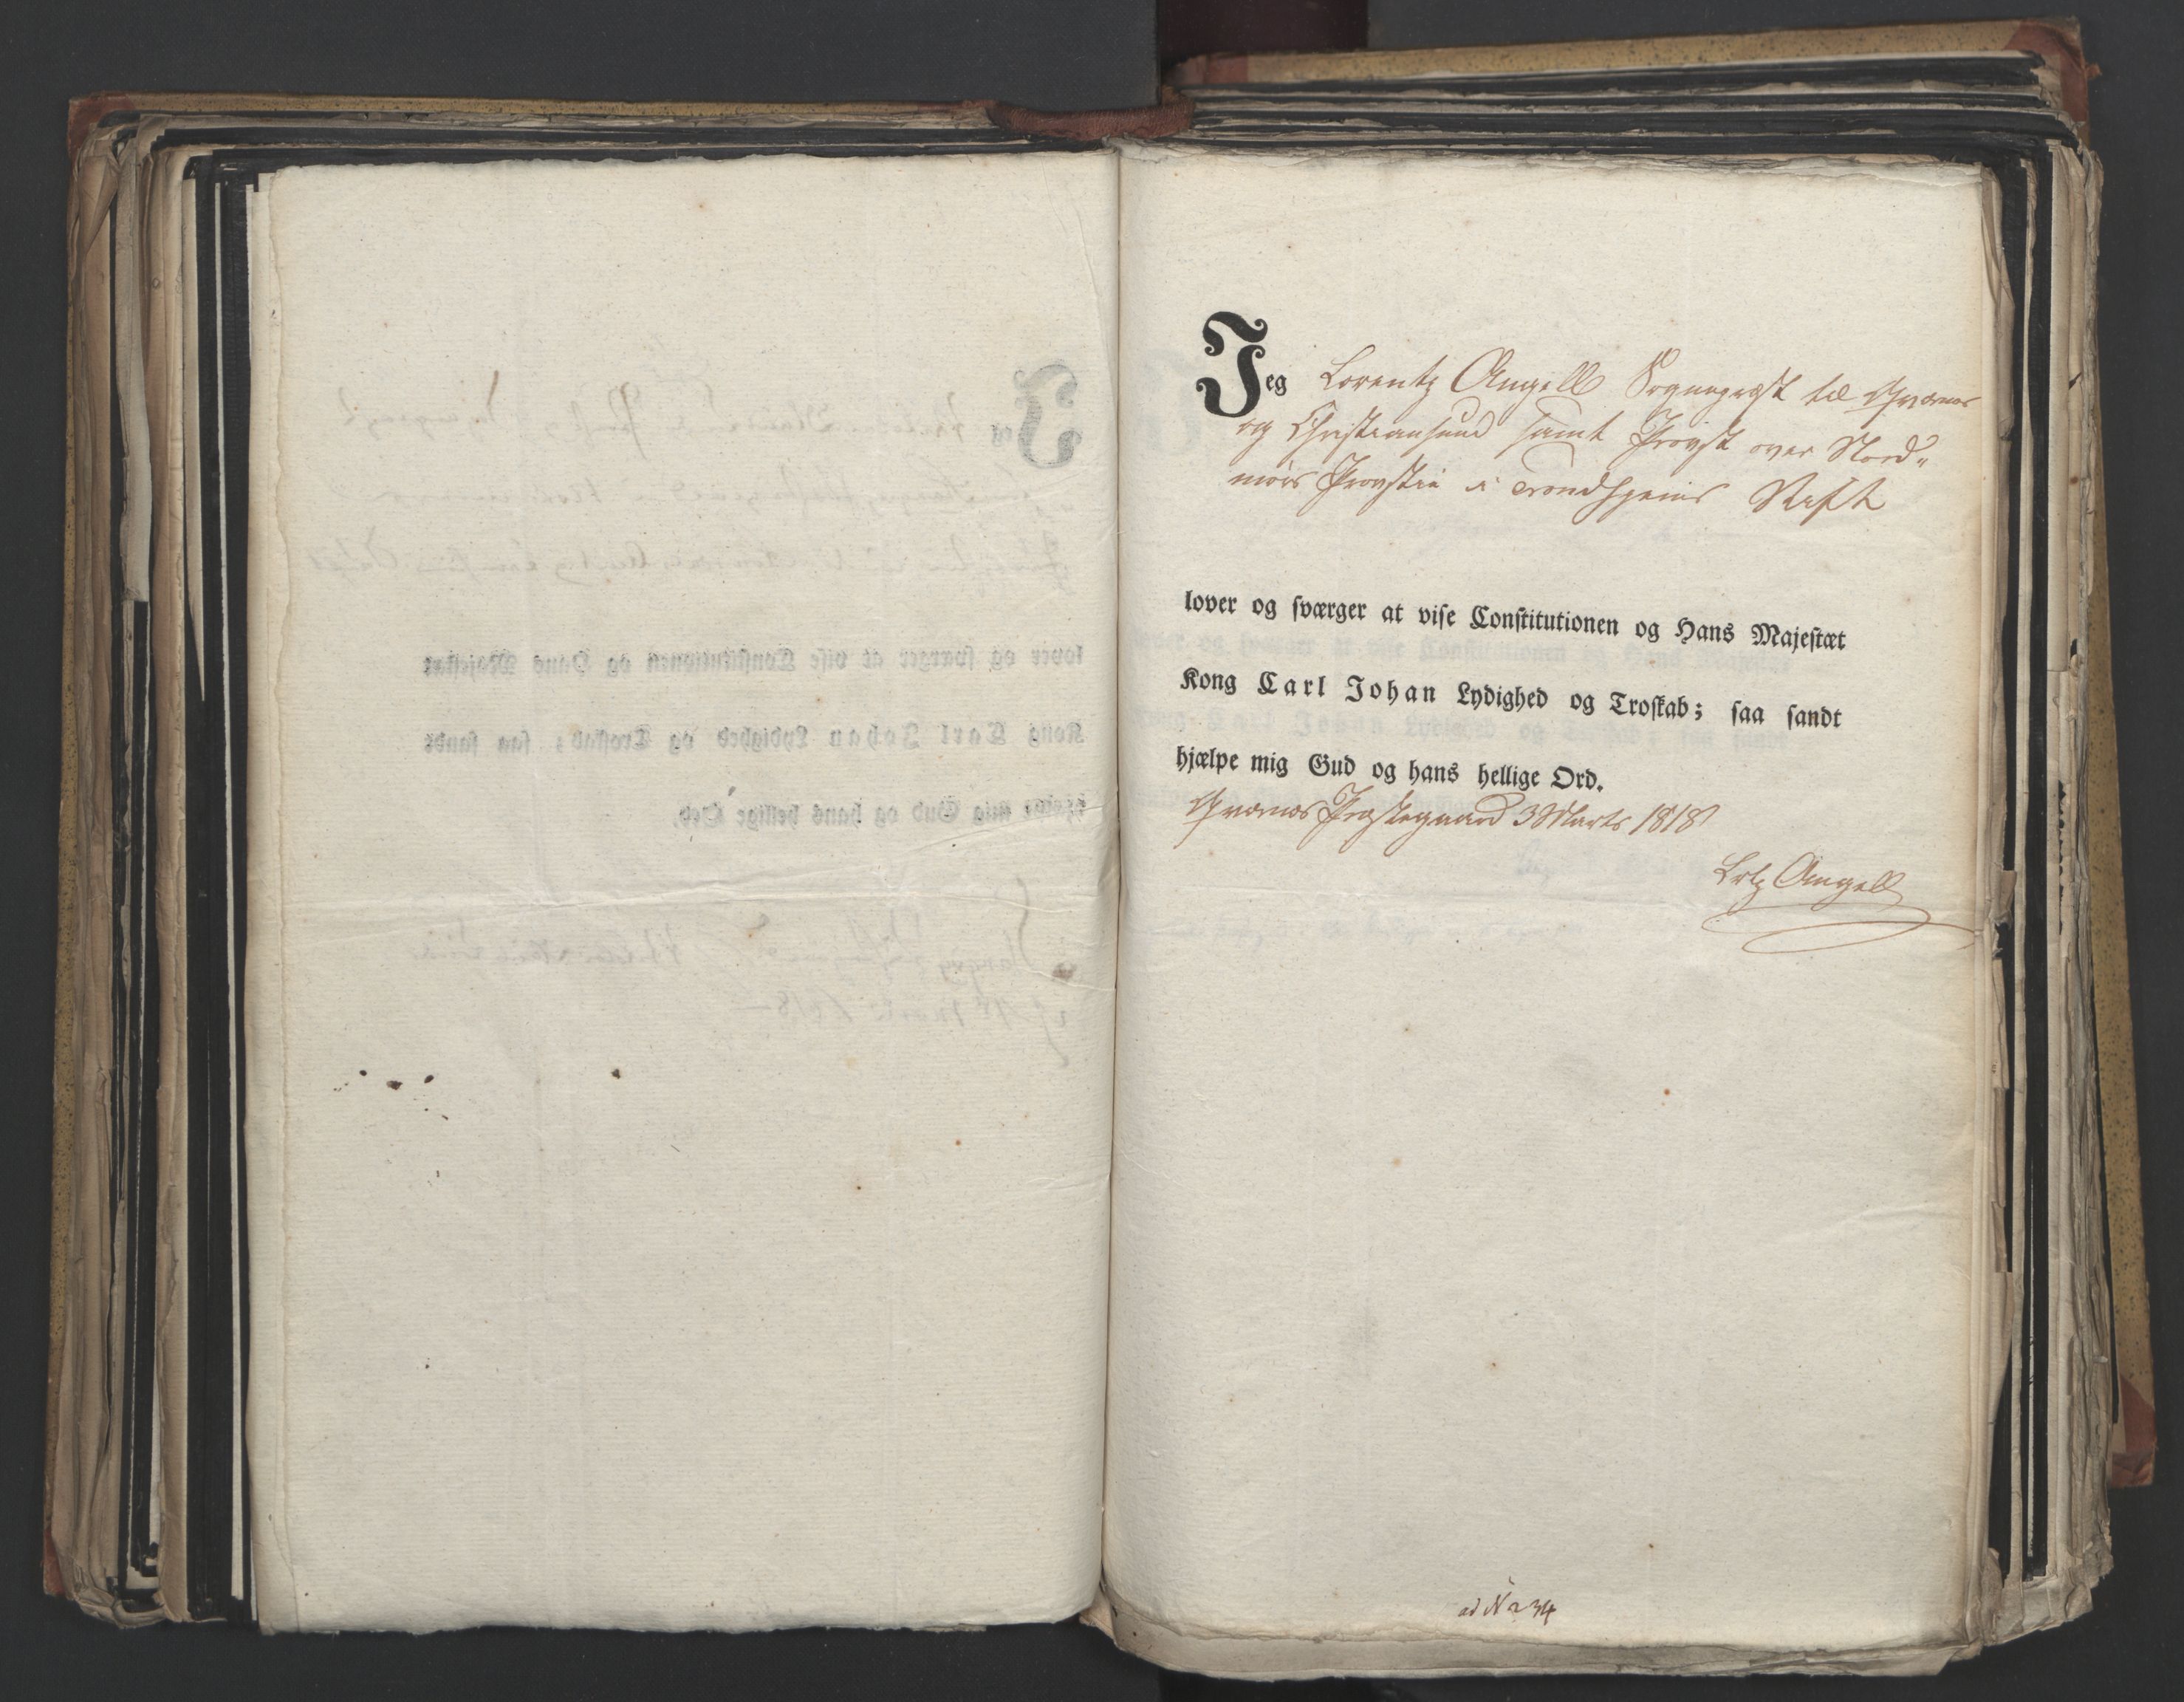 Jeg Lorentz Angell Sognepræst til Qværnæs
og Christiansund samt Provst over Nord-
mörs Provstie i Trondhjems Stift
lover og sværger at vise Constitutionen og Hans Majestæt
Kong Carl Johan Lydighed og Troskab; saa sandt
hjælpe mig Gud og hans hellige Ord.
Qværnæs Præstegaard 3 Marts 1818
Lrtz Angell
ad No 34